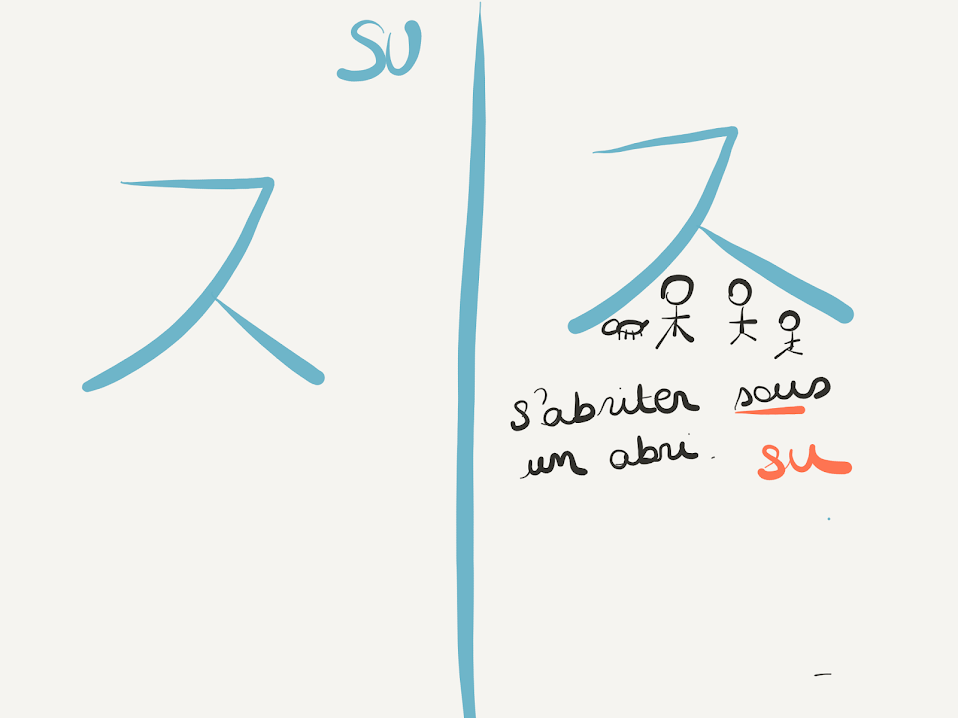 su
ス
ス
s'abriter sous
un abri.
su